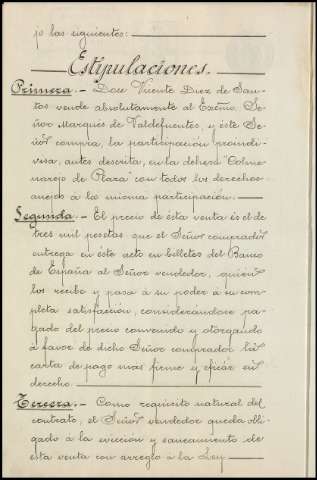 jo las siguientes:
Estipulaciones.
Primera.- Don Vicente Diez de San-
tos vende absolutamente al Excmo. Se-
ñor Marqués de Valdefuentes, y éste Se-
ñor compra, la participación proindi-
visa, antes descrita, en la dehesa "Colme-
narejo de Plara" con todos los derechos
anejos à la misma participación.
Segunda.- El precio de ésta venta es el de
tres mil pesetas que el Señor comprador
entrega en éste acto en billetes del Banco
de España al Señor vendedor, quien
los recibe y pasa à su poder à su com-
pleta satisfacción, considerandose pa-
gado del precio convenido y otorgando
à favor de dicho Señor comprador la
carta de pago mas firme y eficáz en
derecho.
Tercera.- Como requisito natural del
contrato, el Señor vendedor queda obli-
gado à la evicción y saneamiento de
ésta venta con arreglo à la Ley